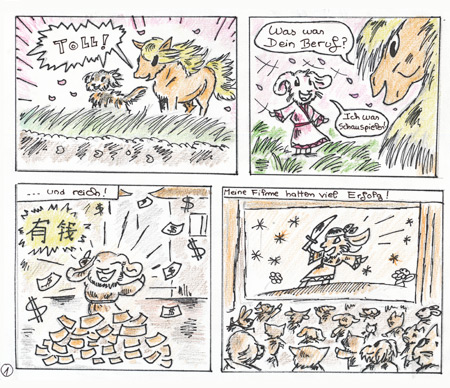 TOLL!
Was war
Dein Beruf?
Ich war
Schauspieler!
... und reich!
有钱
$
$
$
$
Meine Filme hatten viel Erfolg!
1